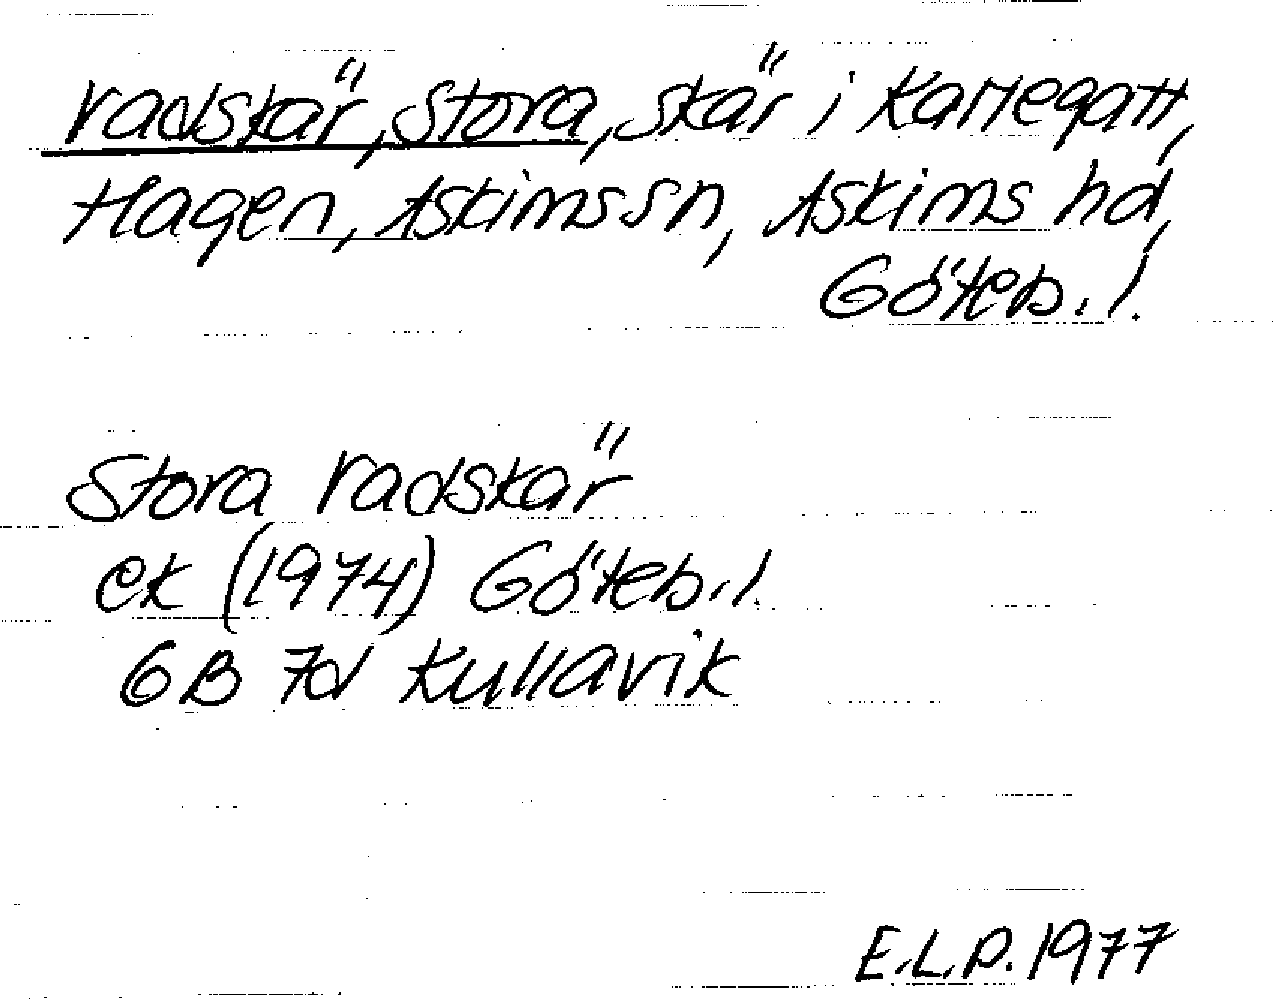 Vadskär, Stora, skär i Kattegatt,
Hagen, Askims sn, Askims hd,
Göteb. l.
Stora Vadskär
ek (1974) Göteb. l.
6B 7d Kullavik
E.L.P. 1977